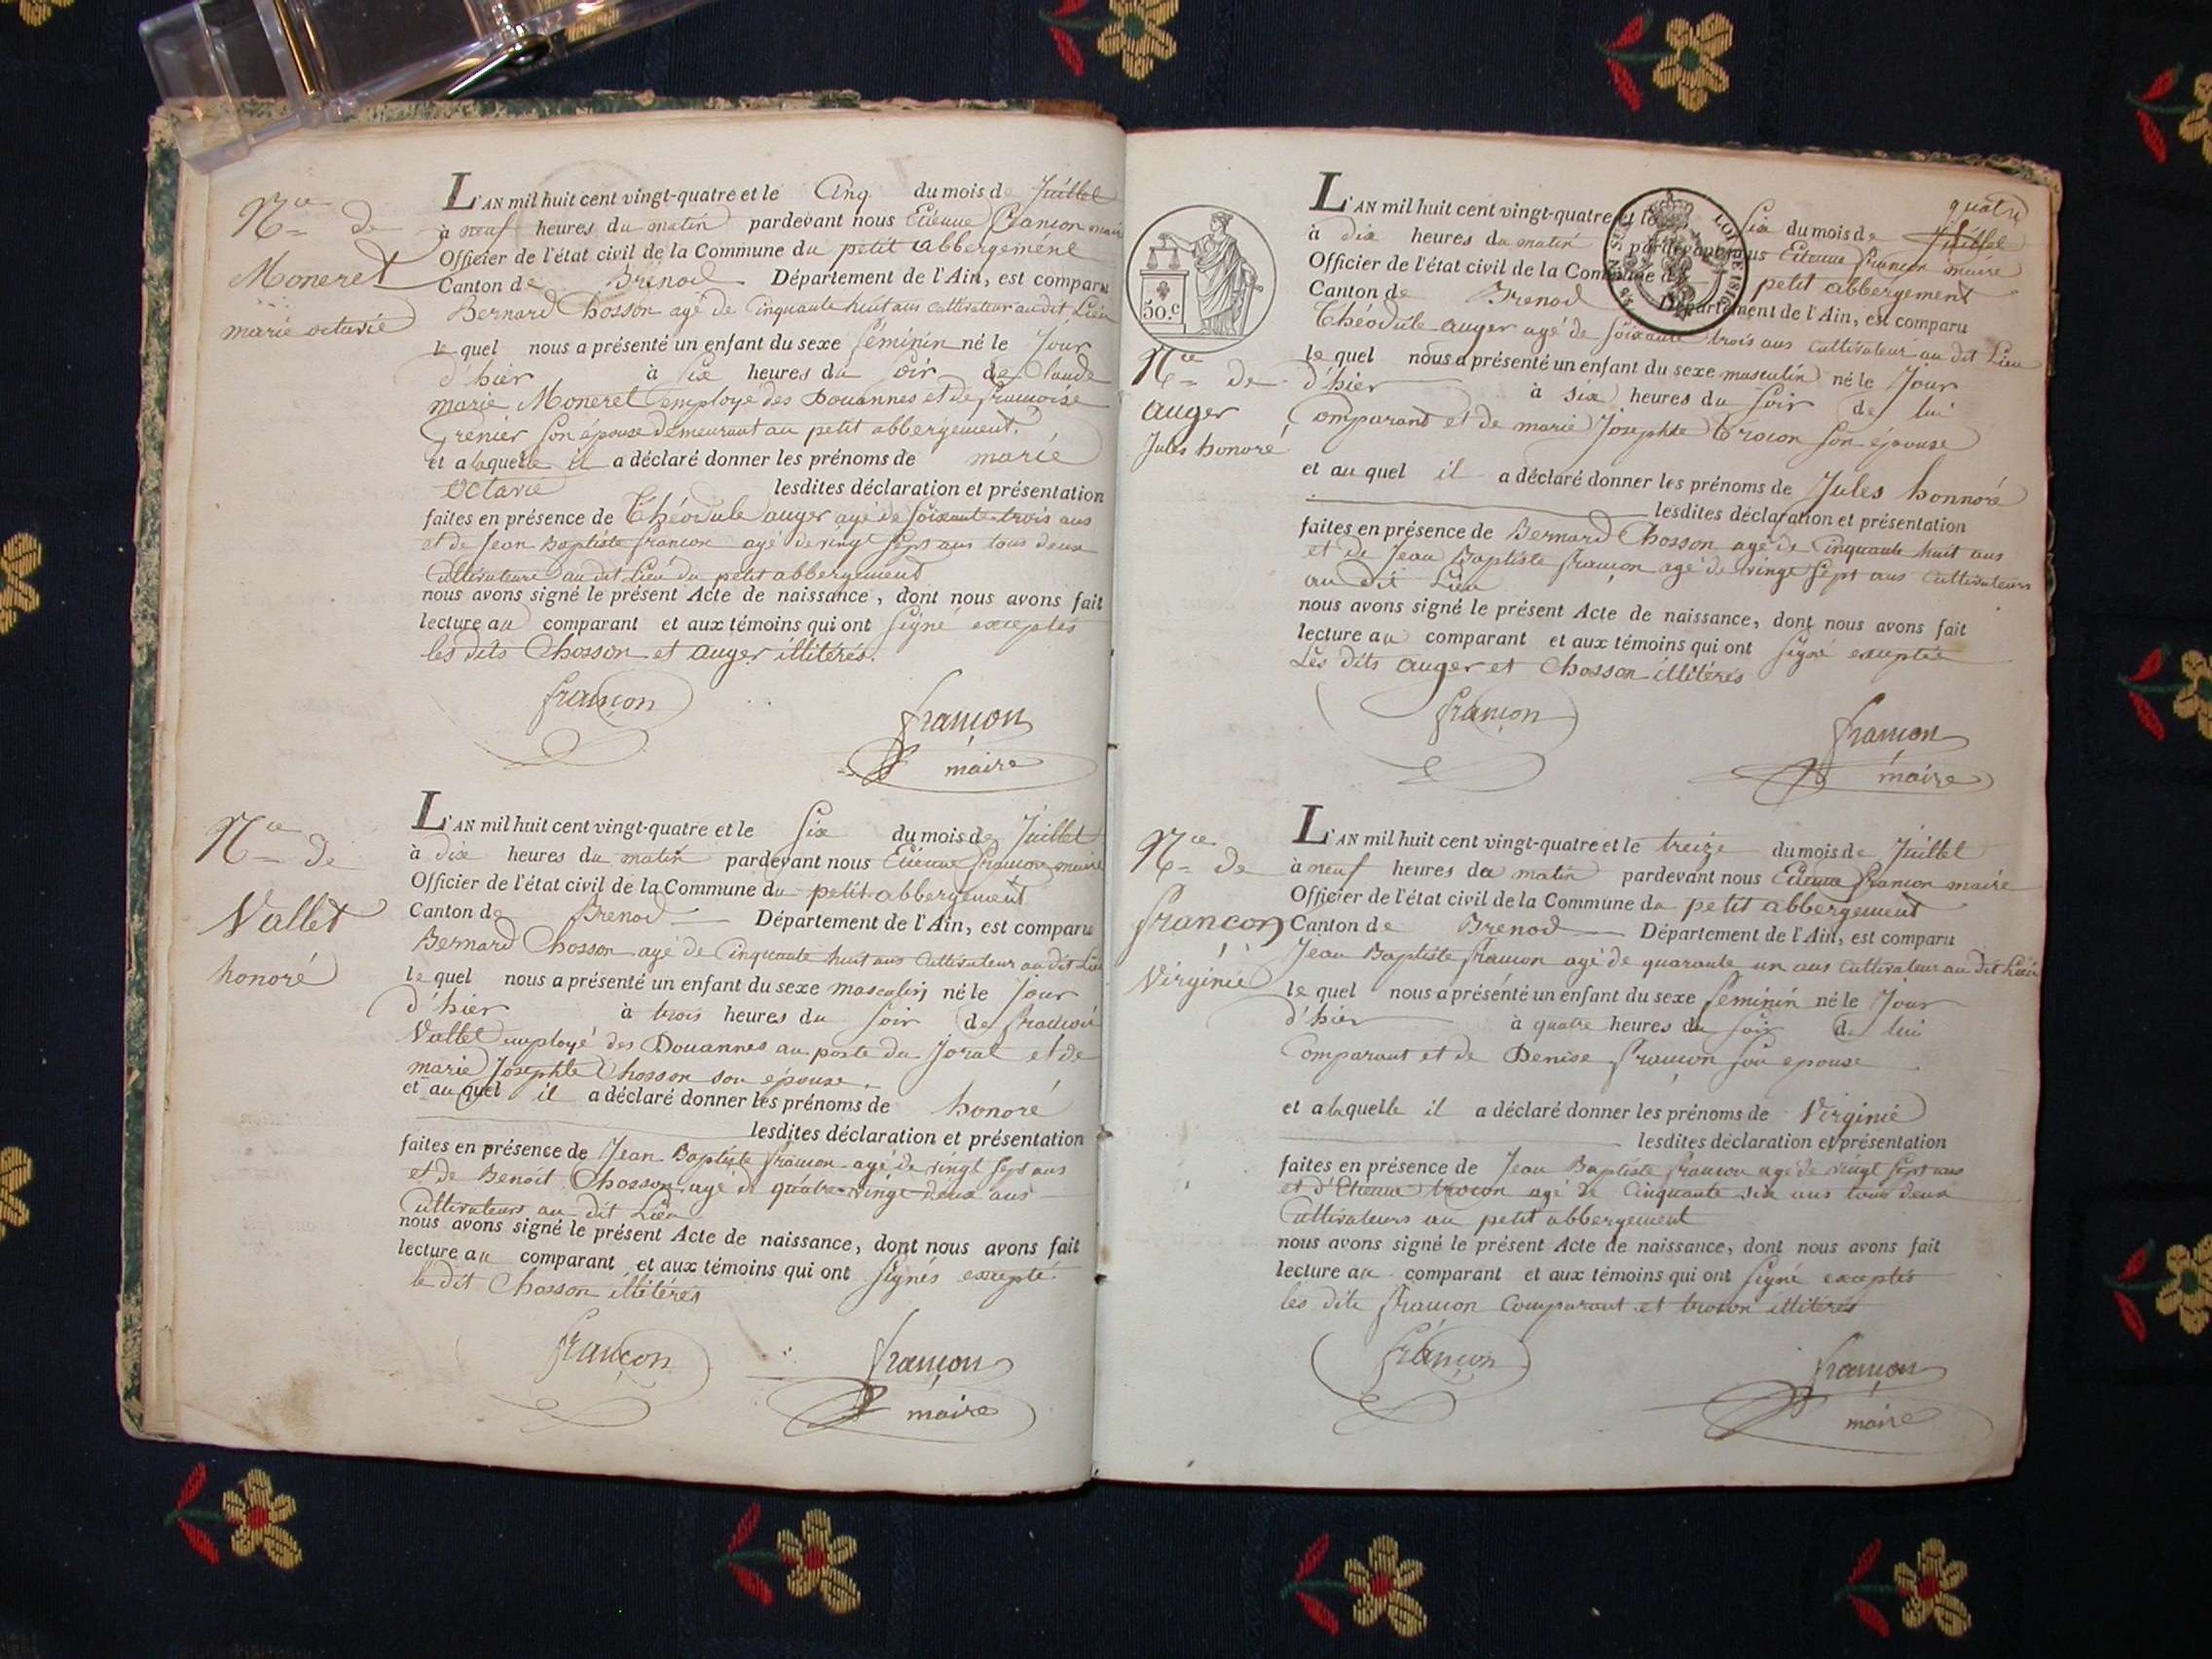 Nce de
Moneret
marie octavie
L'AN mil huit cent vingt-quatre et le Cinq du mois de Juillet
à neuf heures du matin pardevant nous Etienne françon maire
Officier de l'état civil de la Commune du petit abbergement
Canton de Brénod Département de l'Ain, est comparu
Bernard Chosson agé de Cinquante huit ans Cultivateur au dit Lieu
le quel nous a présenté un enfant du sexe féminin né le Jour
d'hier à six heures du soir de Claude
marie Moneret employé des Douannes et de françoise
Grenier son épouse demeurant au petit abbergement.
et a laquelle il a déclaré donner les prénoms de marie
octavie lesdites déclaration et présentation
faites en présence de Théodule auger agé de soixante trois ans
et de Jean Baptiste françon agé de vingt sept ans tous deux
Cultivateurs au dit Lieu du petit abbergement
nous avons signé le présent Acte de naissance, dont nous avons fait
lecture au comparant et aux témoins qui ont signé exceptés
les dits Chosson et auger illitérés.
françon
françon
maire
Nce de
Vallet
honoré
L'AN mil huit cent vingt-quatre et le Six du mois de Juillet
à dix heures du matin pardevant nous Etienne françon maire
Officier de l'état civil de la Commune du petit abbergement
Canton de Brenod Département de l'Ain, est comparu
Bernard Chosson agé de Cinquante huit ans Cultivateur au dit Lieu
le quel nous a présenté un enfant du sexe masculin né le Jour
d'hier à trois heures du soir de françois
Vallet employé des Douannes au poste du Joral et de
marie Josephte Chosson son épouse.
et au quel il a déclaré donner les prénoms de honoré
lesdites déclaration et présentation
faites en présence de Jean Baptiste françon agé de vingt sept ans
et de Benoit Chosson agé de quatre vingt deux ans
Cultivateurs au dit Lieu
nous avons signé le présent Acte de naissance, dont nous avons fait
lecture au comparant et aux témoins qui ont signés excepté
le dit Chosson illitérés
françon
françon
maire
quatre
50.c
LOI DE 1816
Nce de
auger
Jules honoré
L'AN mil huit cent vingt-quatre et le Six du mois de Juillet
à dix heures du matin pardevant nous Etienne françon maire
Officier de l'état civil de la Commune du petit abbergement
Canton de Brenod Département de l'Ain, est comparu
Théodule auger agé de soixante trois ans cultivateur au dit Lieu
le quel nous a présenté un enfant du sexe masculin né le Jour
d'hier à six heures du soir de lui
Comparant et de marie Josephte trocon son épouse
et au quel il a déclaré donner les prénoms de Jules honnoré
lesdites déclaration et présentation
faites en présence de Bernard Chosson agé de Cinquante huit ans
et de Jean Baptiste françon agé de vingt sept ans Cultivateurs
au dit Lieu
nous avons signé le présent Acte de naissance, dont nous avons fait
lecture au comparant et aux témoins qui ont signé exceptés
Les dits auger et Chosson illitérés
françon
françon
maire
Nce de
françon
Virginie
L'AN mil huit cent vingt-quatre et le treize du mois de Juillet
à neuf heures du matin pardevant nous Etienne françon maire
Officier de l'état civil de la Commune du petit abbergement
Canton de Brenod Département de l'Ain, est comparu
Jean Baptiste françon agé de quarante un ans Cultivateur au dit Lieu
le quel nous a présenté un enfant du sexe feminin né le Jour
d'hier à quatre heures du soir de lui
Comparant et de Denise françon son epouse
et a laquelle il a déclaré donner les prénoms de Virginie
lesdites déclaration et présentation
faites en présence de Jean Baptiste françon agé de vingt sept ans
et d'Etienne trocon agé de Cinquante six ans tous deux
Cultivateurs au petit abbergement
nous avons signé le présent Acte de naissance, dont nous avons fait
lecture au comparant et aux témoins qui ont signé exceptés
les dits françon Comparant et trocon illitérés
françon
françon
maire